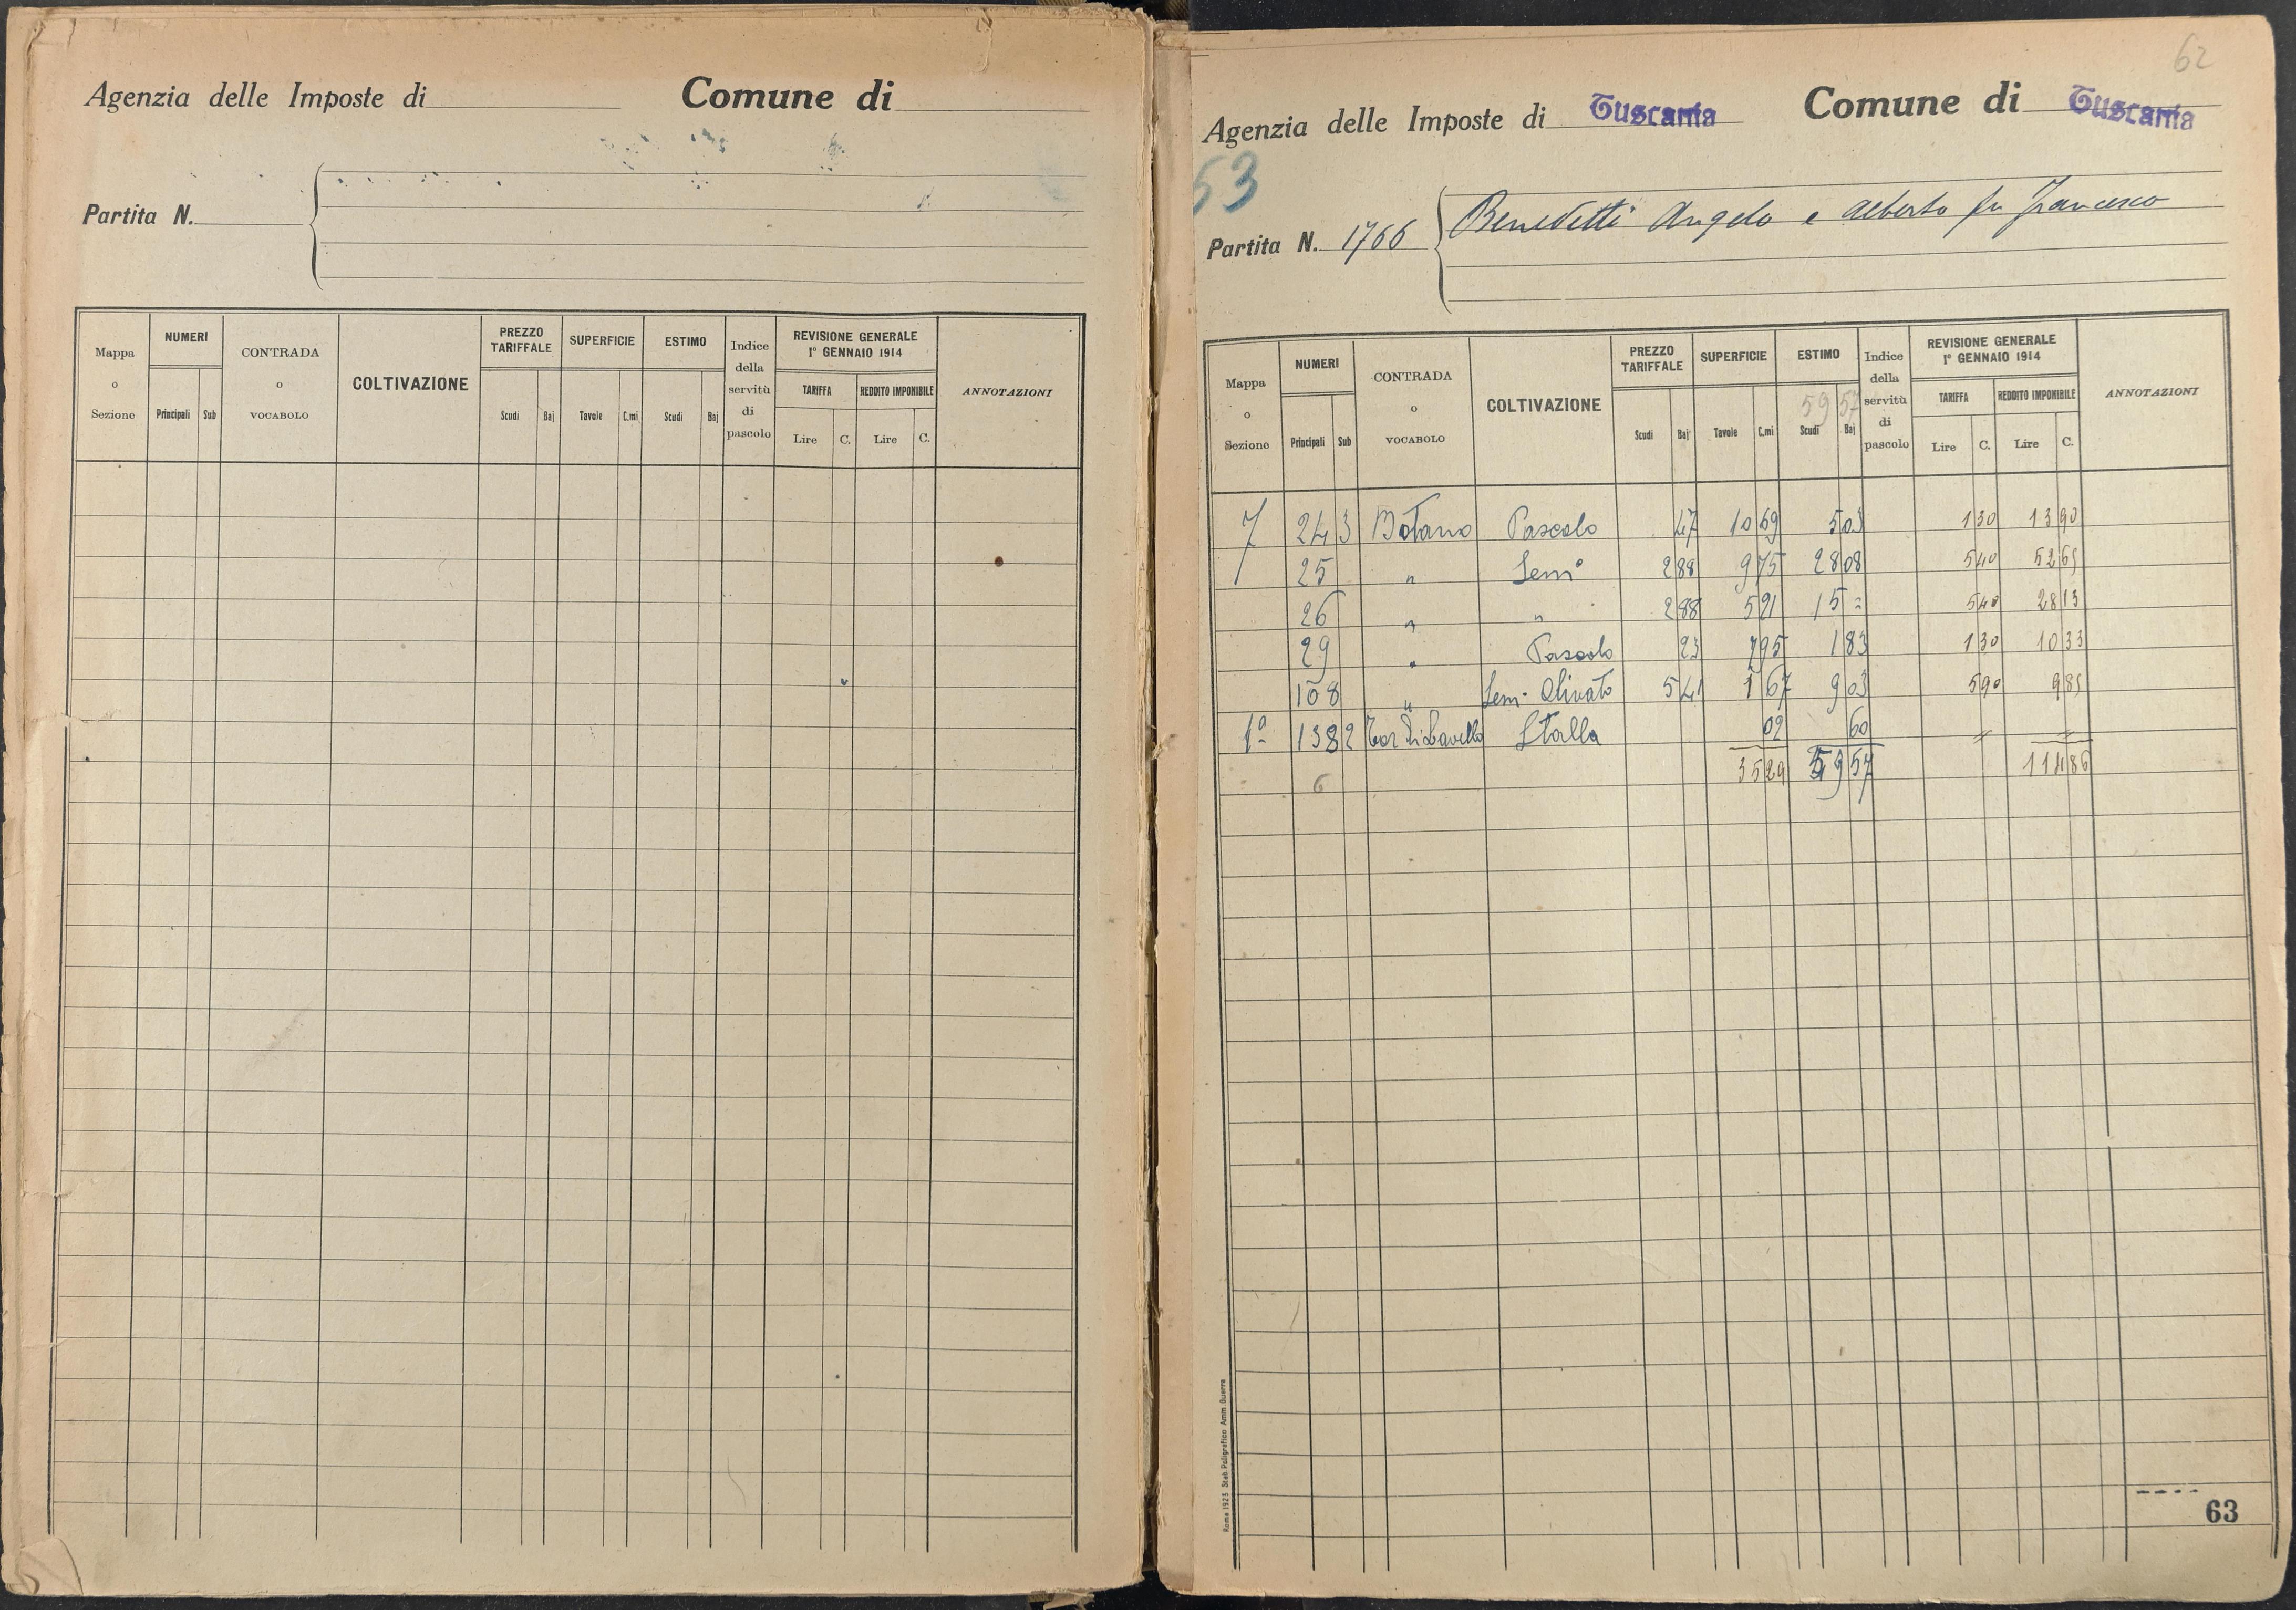 Agenzia delle Imposte di Comune di
Partita N.
Mappa o Sezione NUMERI Principali Sub CONTRADA o VOCABOLO COLTIVAZIONE PREZZO TARIFFALE Scudi Baj SUPERFICIE Tavole C.mi ESTIMO Scudi Baj Indice della servitù di pascolo REVISIONE GENERALE 1° GENNAIO 1914 TARIFFA Lire C. REDDITO IMPONIBILE Lire C. ANNOTAZIONI
62
Agenzia delle Imposte di Tuscania Comune di Tuscania
53
Partita N. 1766 Benedetti Angelo e Alberto fu Francesco
Mappa o Sezione NUMERI Principali Sub CONTRADA o VOCABOLO COLTIVAZIONE PREZZO TARIFFALE Scudi Baj SUPERFICIE Tavole C.mi ESTIMO 59 57 Scudi Baj Indice della servitù di pascolo REVISIONE GENERALE 1° GENNAIO 1914 TARIFFA Lire C. REDDITO IMPONIBILE Lire C. ANNOTAZIONI
7 24 3 Botano Pascolo 47 10 69 5 03 1 30 13 90
25 " Sem° 2 88 9 75 28 08 5 40 52 65
26 " " 2 88 5 21 15 = 5 40 28 13
29 " Pascolo 23 7 95 1 83 1 30 10 33
108 " Sem. Olivato 5 41 1 67 9 03 5 90 9 85
1ª 138 2 Stalla 02 60 " "
6 35 29 59 57 114 86
Roma 1923 Stab. Poligrafico Amm. Guerra
63